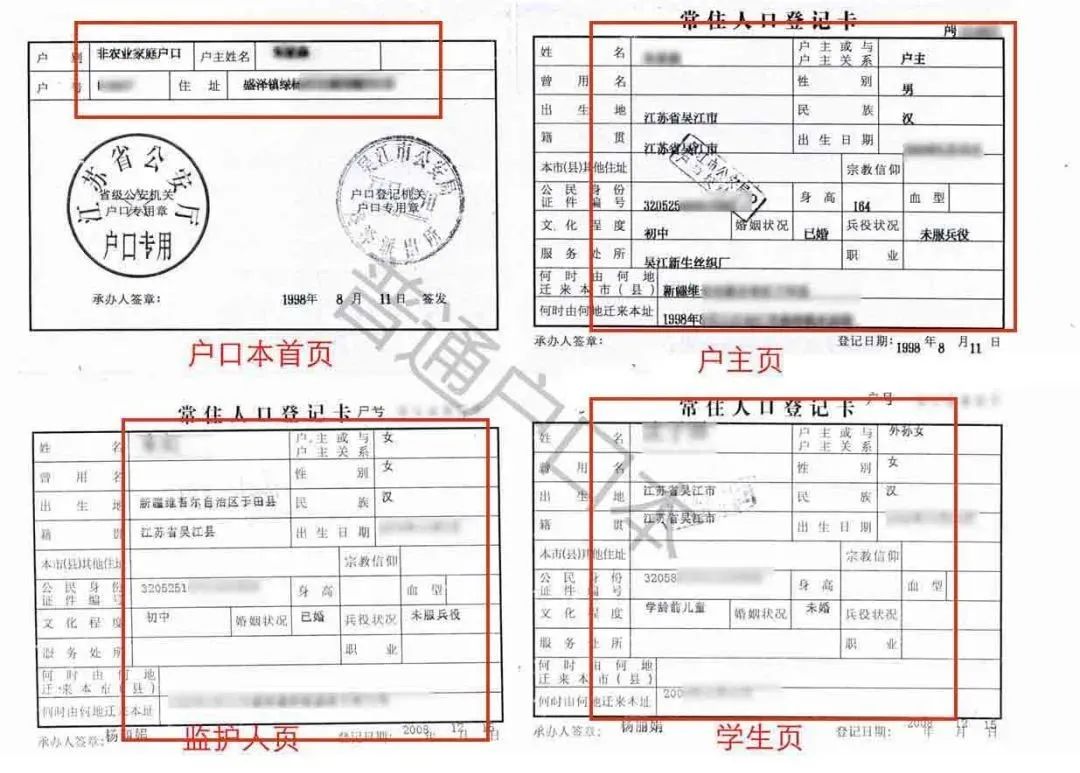 户 别 非农业家庭户口 户主姓名
户 号 住 址 盛泽镇绿
江苏省公安厅
省级公安机关
户口专用章
户口专用
吴江市公安局
户口登记机关
户口专用章
派出所
承办人签章:
1998年 8 月 11日 签发
户口本首页
常住人口登记卡
户号
姓 名 户主或与户主关系 户主
曾用名 性 别 男
出生地 江苏省吴江市 民 族 汉
籍 贯 江苏省吴江市 出生日期
本市(县)其他住址 宗教信仰
公民身份证件编号 320525 身 高 164 血 型
文化程度 初中 婚姻状况 已婚 兵役状况 未服兵役
服务处所 吴江新生丝织厂 职 业
何时由何地迁来本市(县) 新疆维
何时由何地迁来本址 1998年8
承办人签章: 登记日期:1998年 8 月 11 日
户主页
普通户口本
常住人口登记卡
户号
姓 名 户主或与户主关系 女
曾用名 性 别 女
出生地 新疆维吾尔自治区于田县 民 族 汉
籍 贯 江苏省吴江县 出生日期
本市(县)其他住址 宗教信仰
公民身份证件编号 3205251 身 高 血 型
文化程度 初中 婚姻状况 已婚 兵役状况 未服兵役
服务处所 职 业
何时由何地迁来本市(县)
何时由何地迁来本址
承办人签章:杨丽娟 登记日期: 2008年 12 月 15日
监护人页
常住人口登记卡
户号
姓 名 户主或与户主关系 外孙女
曾用名 性 别 女
出生地 江苏省吴江市 民 族 汉
籍 贯 江苏省吴江市 出生日期
本市(县)其他住址 宗教信仰
公民身份证件编号 32058 身 高 血 型
文化程度 学龄前儿童 婚姻状况 未婚 兵役状况
服务处所 职 业
何时由何地迁来本市(县)
何时由何地迁来本址 200
承办人签章:杨丽娟 登记日期: 2008年 12 月 15日
学生页